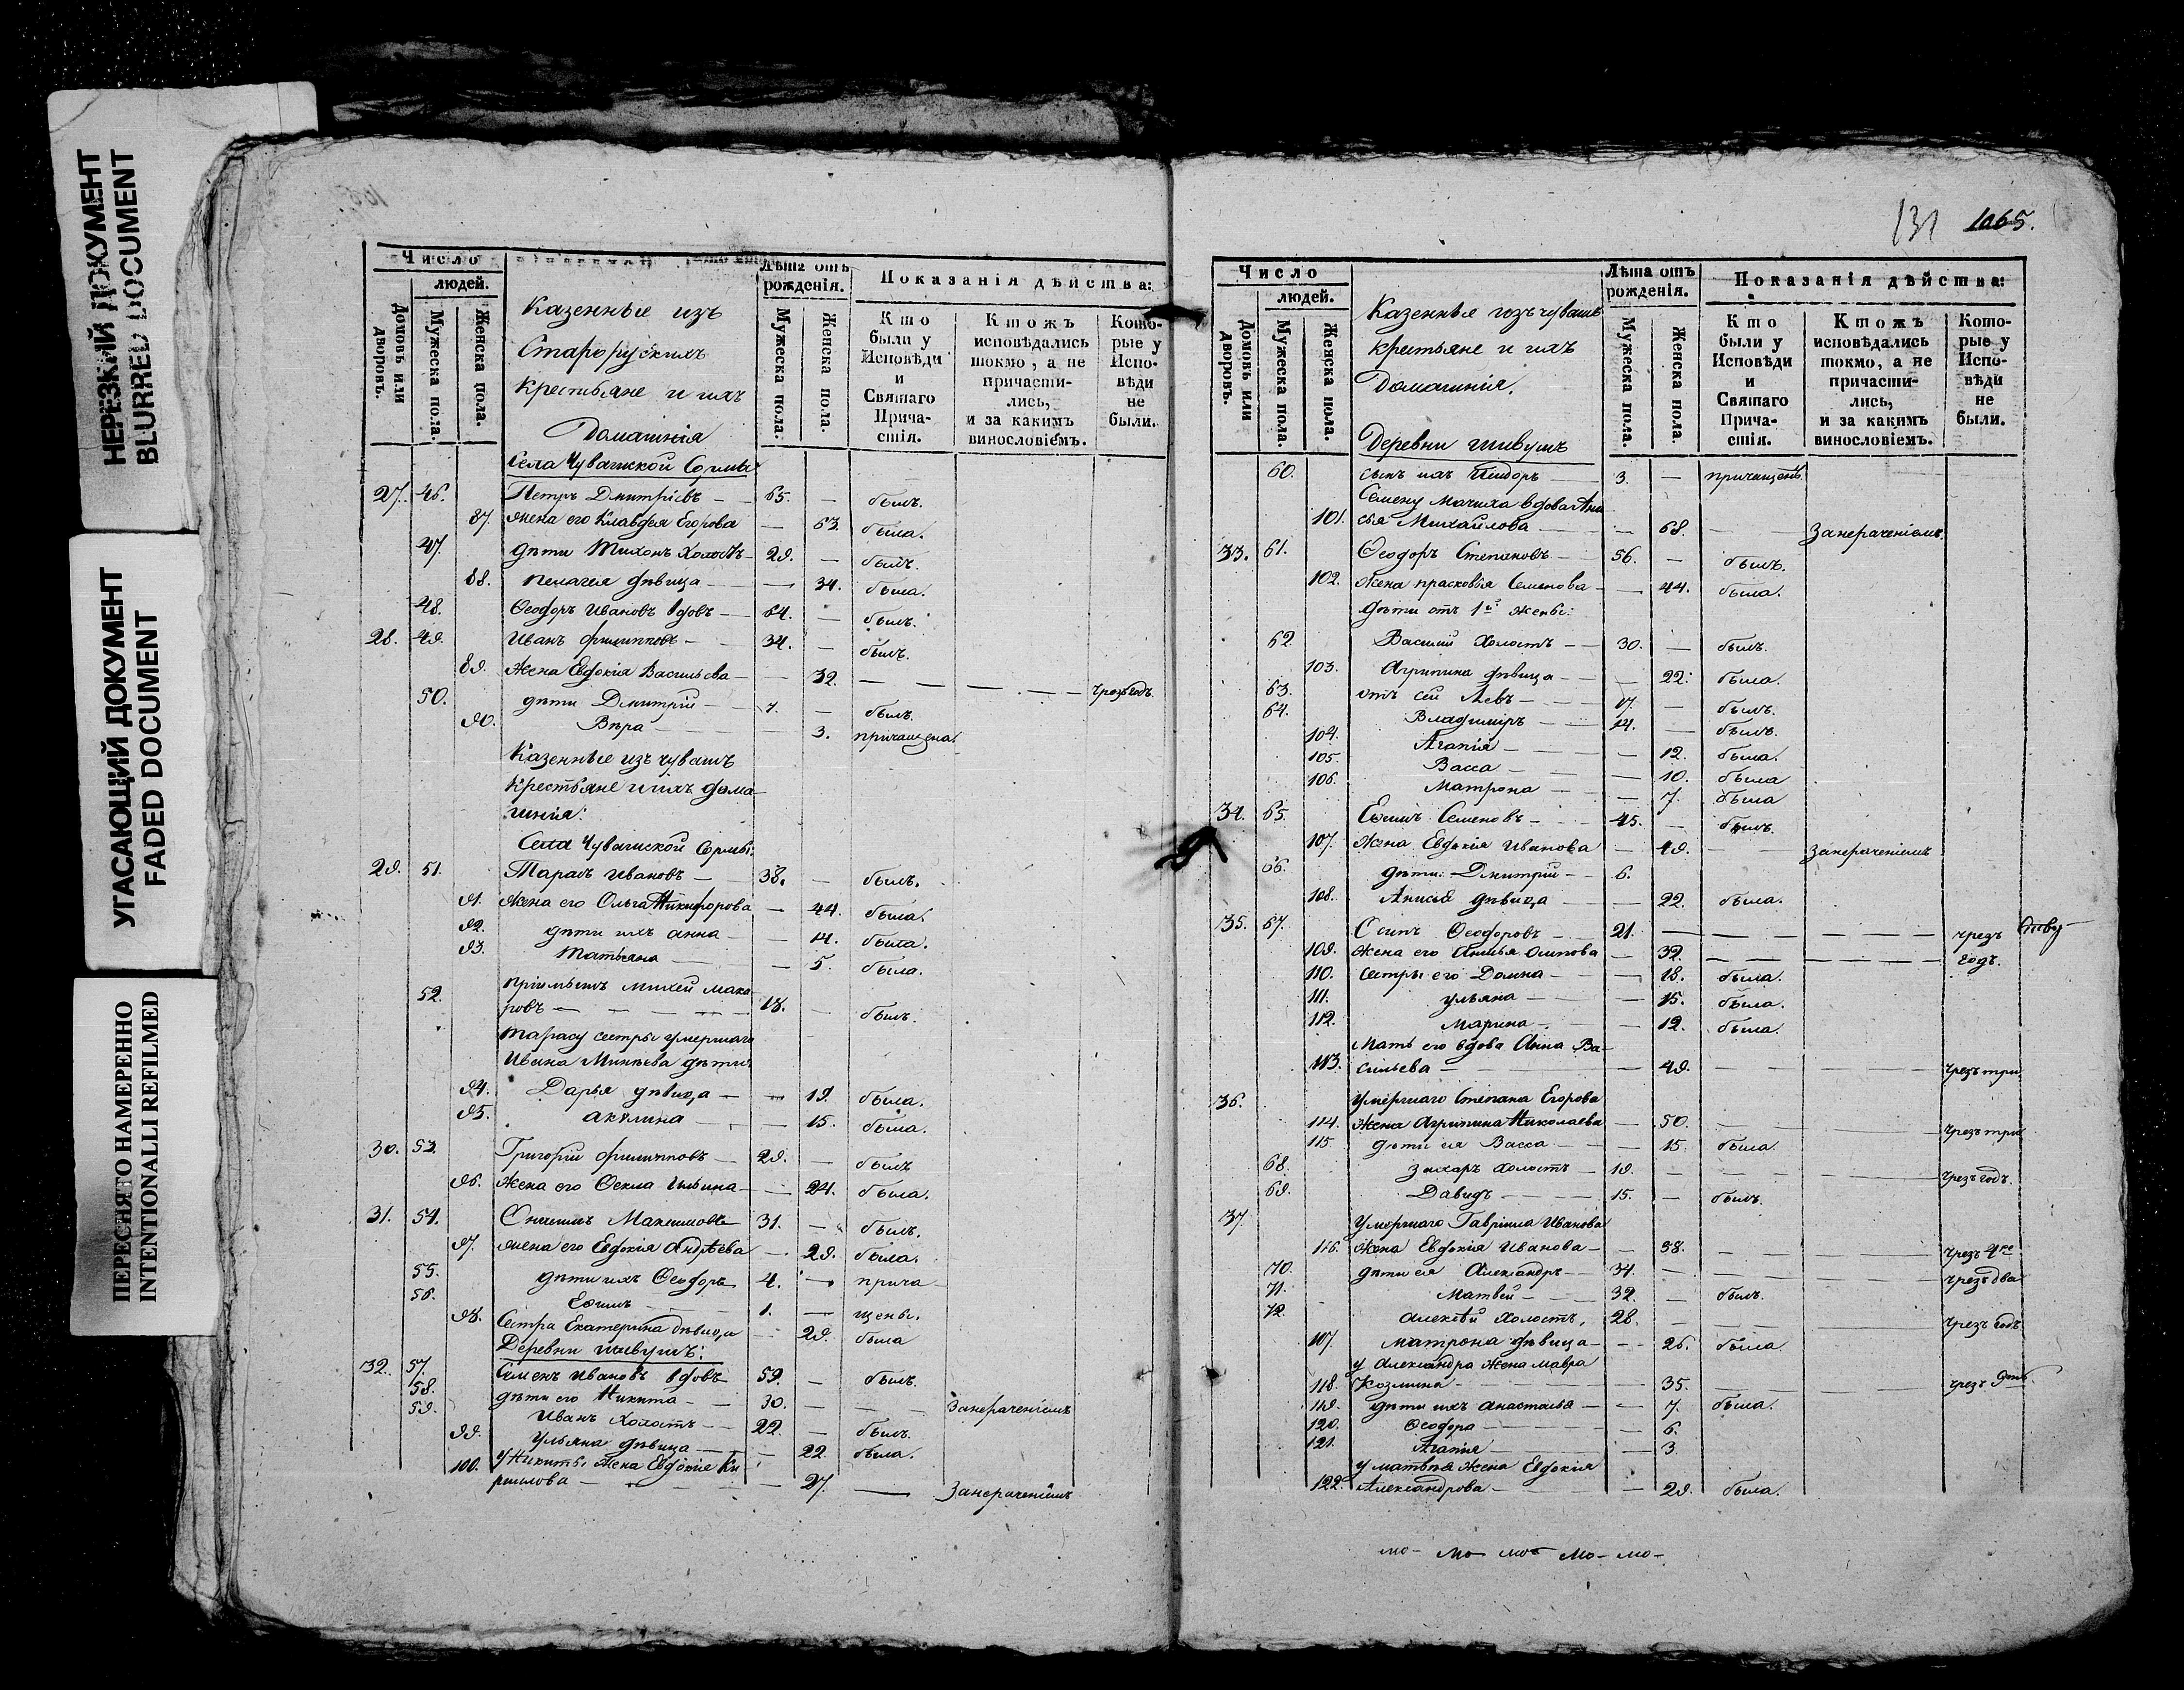 НЕРЕЗКИЙ ДОКУМЕНТ
BLURRED DOCUMENT
УГАСАЮЩИЙ ДОКУМЕНТ
FADED DOCUMENT
ПЕРЕСНЯТО НАМЕРЕННО
INTENTIONALLI REFILMED
Число
людей.
Домовъ или дворовъ.
Мужеска пола.
Женска пола.
Казенные изъ
Старорускихъ
крестьяне и ихъ
Домашнія
Лѣта отъ рожденія.
Мужеска пола.
Женска пола.
Показанія дѣйства:
Кто были у Исповѣди и Святаго Прича-стія.
Ктожъ исповѣдались токмо, а не причасти-лись, и за какимъ винословіемъ.
Кото-рые у Испо-вѣди не были.
Села Чувашской Сормы
27. 46. Петръ Дмитріевъ — 65. — былъ.
87. жена его Клавдея Егорова — 63. была.
47. дѣти Тихонъ холостъ — 29. — былъ.
88. Пелагея дѣвица — — 34. была.
48. Ѳеодоръ Ивановъ вдовъ — 64. — былъ.
28. 49. Иванъ Филипповъ — 34. — былъ.
89. Жена Евдокія Васильева — — 32. — — — — чрезъ годъ
50. дѣти Дмитрій — 7. — былъ.
90. Вѣра — — 3. причащена.
Казенные изъ чувашъ
Крестьяне и ихъ дома-
шнія:
Села Чувашской Сормы:
29. 51. Тарасъ Ивановъ — 38. — былъ.
91. Жена его Ольга Никифорова — 44. была.
92. дѣти ихъ Анна — — 14. была.
93. Татьяна — — 5. была.
Пріимышъ Михей Мака-
52. ровъ — — — 18. — былъ.
Тарасу сестры умершаго
Ивана Минѣева дѣти
94. Дарья дѣвица — — 19. была.
95. Акулина — — 15. была.
30. 53. Григорій Филипповъ — 29. — былъ
96. Жена его Ѳекла Ильина — — 24. была.
31. 54. Онисимъ Максимовъ 31. — былъ.
97. жена его Евдокія Андрѣева — 29. была.
55. дѣти ихъ Ѳеодоръ 4. — прича-
56. Ефимъ — 1. — щены.
98. Сестра Екатерина дѣвица — 29. была
Деревни Шивушъ:
32. 57. Семенъ Ивановъ вдовъ 59. — былъ.
58. дѣти его Никита — 30. — — Занераченіемъ
59. Иванъ холостъ — 22. — былъ.
99. Ульяна дѣвица — — 22. была.
100. у Никиты жена Евдокія Ки-
рилова — — — 27. — Занераченіемъ
131 1065.
Число
людей.
Домовъ или дворовъ.
Мужеска пола.
Женска пола.
Казенныя изъ чувашъ
крестьяне и ихъ
Домашнія.
Лѣта отъ рожденія.
Мужеска пола.
Женска пола.
Показанія дѣйства:
Кто были у Исповѣди и Святаго Прича-стія.
Ктожъ исповѣдались токмо, а не причасти-лись, и за какимъ винословіемъ.
Кото-рые у Испо-вѣди не были.
Деревни Шивушъ
60. сынъ ихъ 3. — причащенъ.
Семену мачиха вдова Ани-
101. сья Михайлова — — 68. — Занераченіемъ.
33. 61. Ѳеодоръ Степановъ — 56. — былъ.
102. Жена Прасковія Семенова — — 44. была.
дѣти отъ 1й жены:
62 Василій холостъ — 30. — былъ.
103. Агрипина дѣвица — — 22. была.
63. отъ сей Левъ — 17. — былъ.
64. Владиміръ — 14. — былъ.
104. Агапія — — 12. была.
105. Васса — — 10. была
106. Матрона — — 7. была
34. 65. Ефимъ Семеновъ — 45. — былъ.
107. Жена Евдокія Иванова — 49. — Занераченіемъ
66. дѣти: Дмитрій — 6.
108. Анисья дѣвица — — 22. была.
35. 67. Осипъ Ѳеодоровъ — 21. — — — чрезъ
109. Жена его — 32. — — — годъ.
110. сестры его Домна — — 18. была.
111. Ульяна — — 15. была.
112. Марина — — 12. была.
Мать его вдова Анна Ва-
113. сильева — — 49. — — — чрезъ три
36. Умершаго Степана Егорова
114. Жена Агрипина Николаева — 50. — — — чрезъ три
115 дѣти ея Васса — — 15. была
68. Захаръ холостъ — 19. — — — чрезъ годъ.
69. Давидъ — 15. — былъ.
37. Умершаго Гавріила Иванова
116. Жена Евдокія Иванова — — 58. — — чрезъ 4ре
70. дѣти ея Александръ — 34. — — — чрезъ два
71. Матвей — 32. — былъ.
72. Алексѣй холостъ, 28. — — — чрезъ годъ.
107. Матрона дѣвица — — 26. была
у Александра жена Мавра
118. Козмина — — 35. — — — чрезъ
119. дѣти ихъ Анастасія — — 7. была.
120. Ѳеодора — — 6.
121. Агапія — — 3.
у Матвѣя жена Евдокія
122. Александрова — — 29. была.
мо- мо- мо- мо- мо-